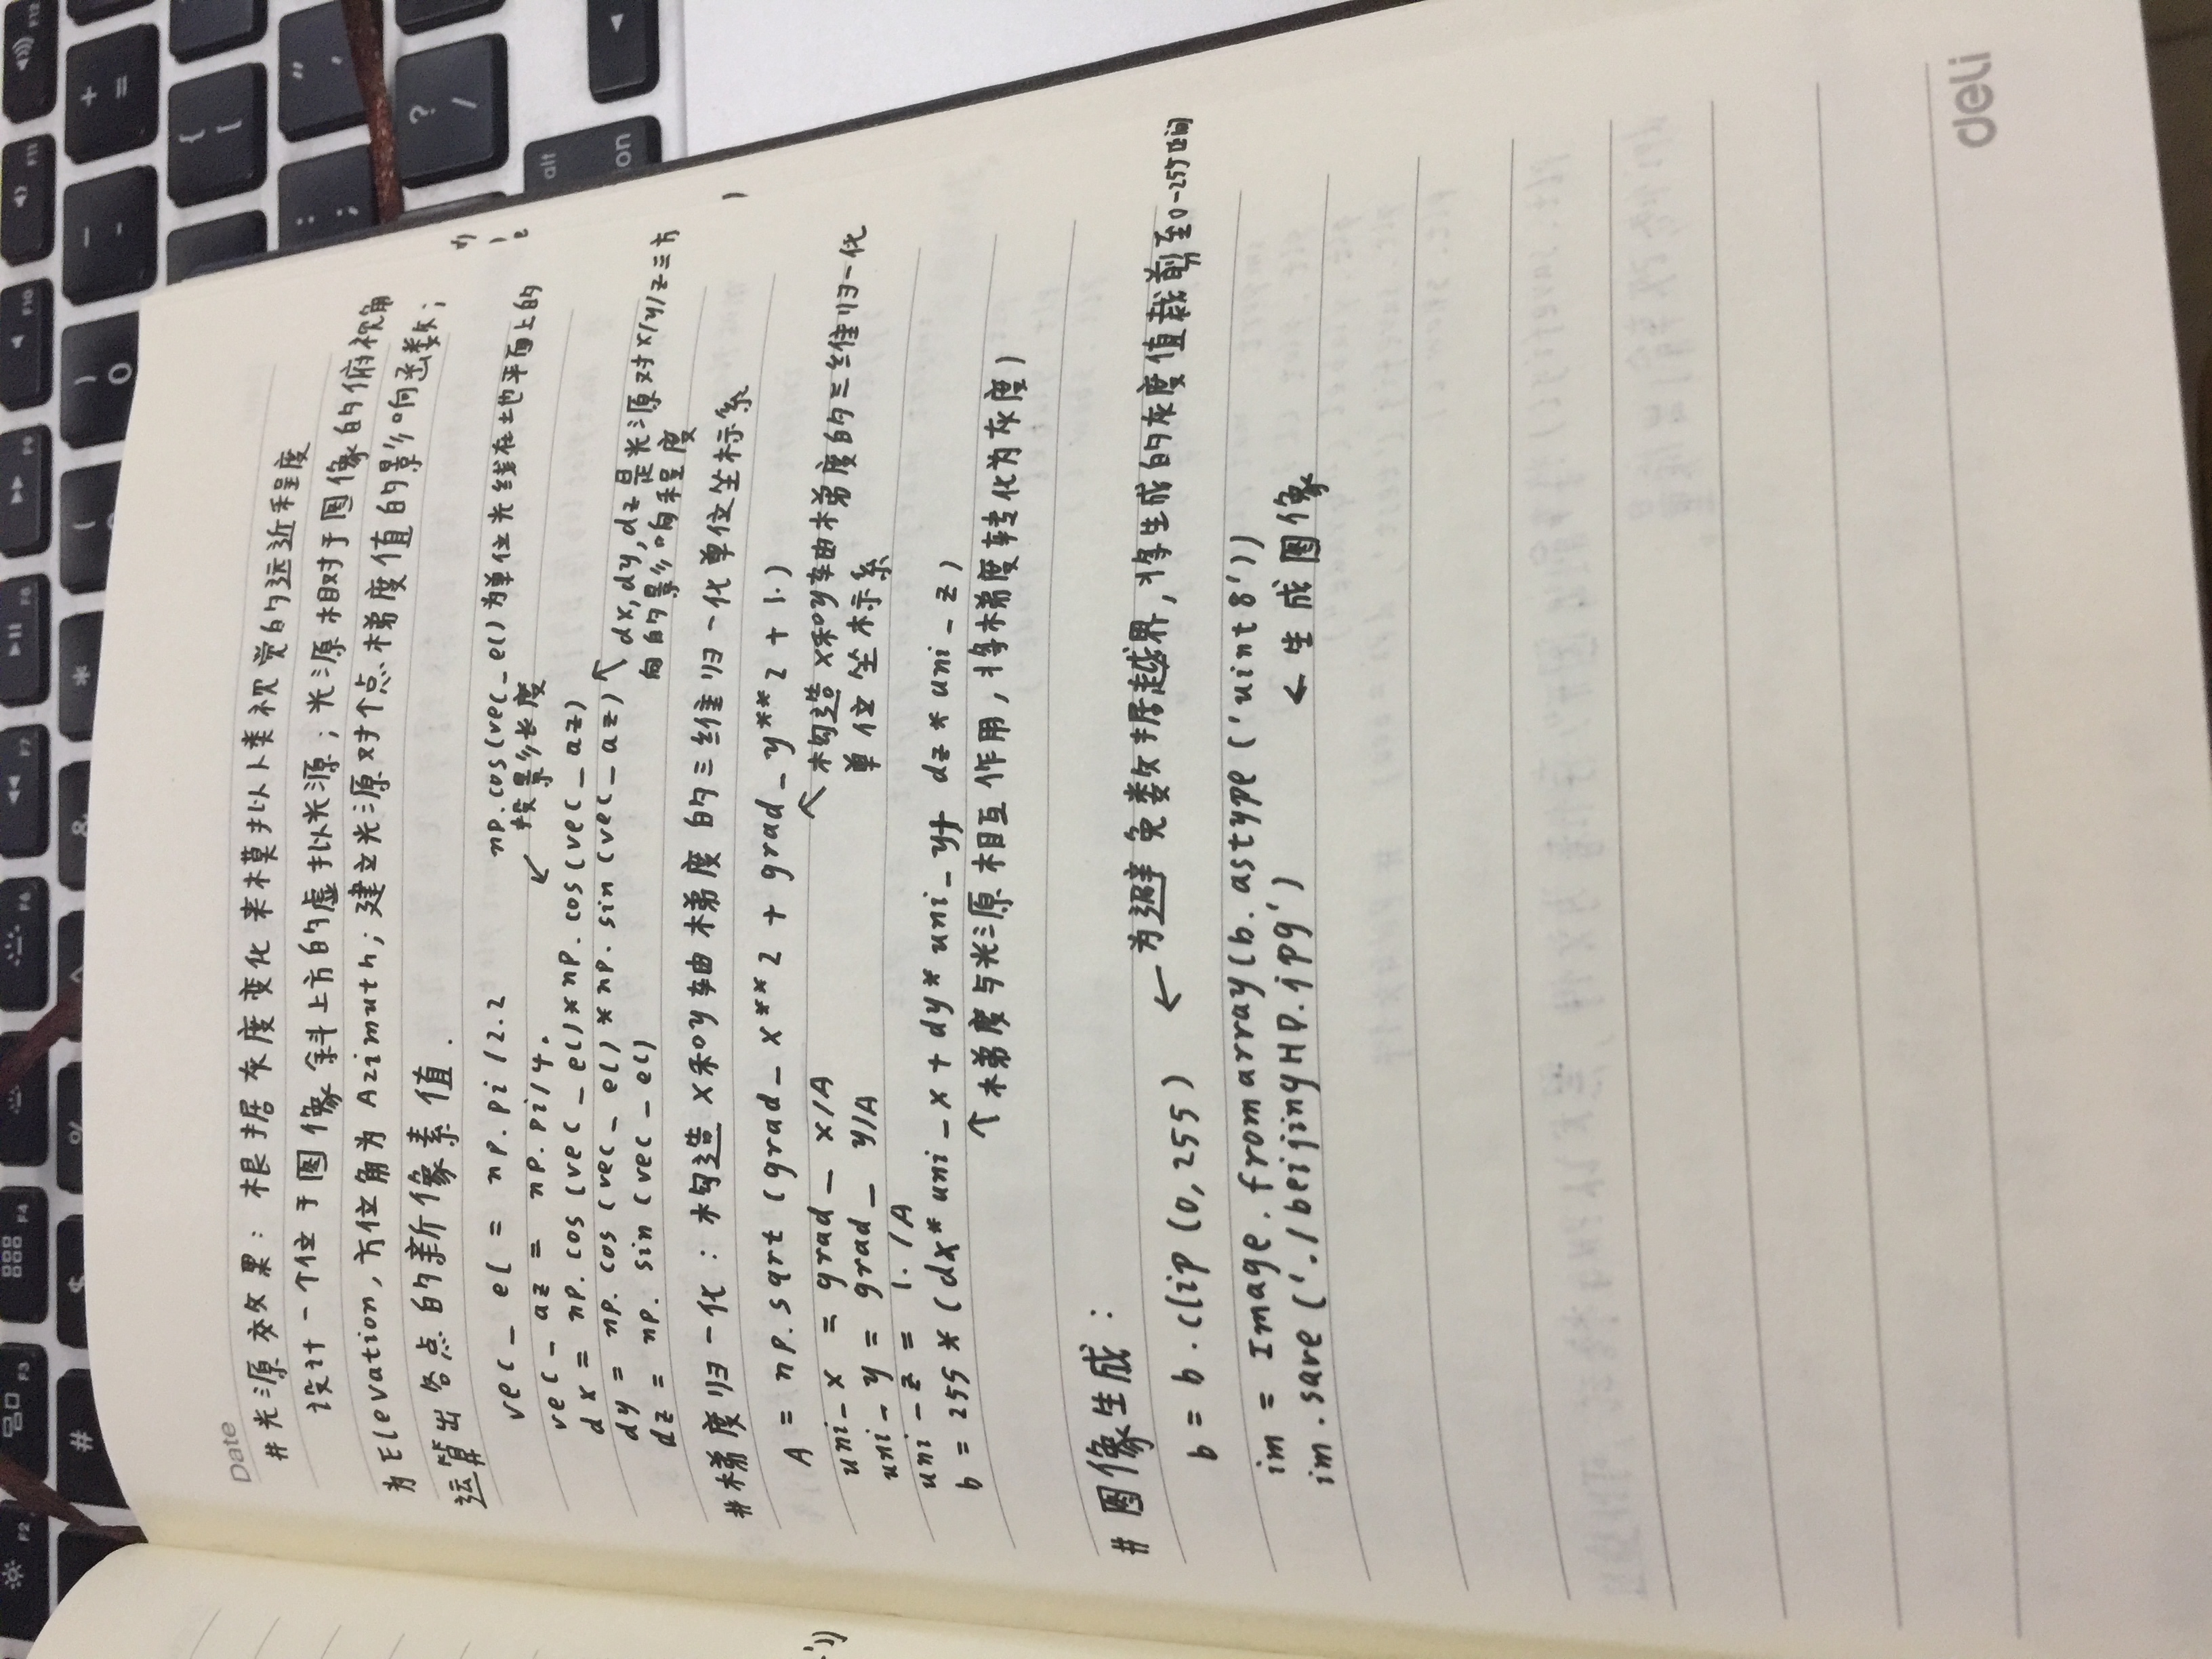 Date
#光源效果：根据灰度变化来模拟人类视觉的远近程度
设计一个位于图像斜上方的虚拟光源；光源相对于图像的俯视角
为Elevation，方位角为Azimuth；建立光源对个点梯度值的影响函数；
运算出各点的新像素值．
vec_el = np.pi/2.2
np.cos(vec_el)为单位光线在地平面上的
投影长度
vec_az = np.pi/4.
↙
dx = np.cos(vec_el)*np.cos(vec_az)
dy = np.cos(vec_el)*np.sin(vec_az)
dz = np.sin(vec_el)
↖ dx,dy,dz是光源对x/y/z三方
向的影响程度
#梯度归一化：构造x和y轴梯度的三维归一化单位坐标系
A = np.sqrt(grad_x**2 + grad_y**2 + 1.)
uni_x = grad_x/A
↖ 构造x和y轴梯度的三维归一化
单位坐标系
uni_y = grad_y/A
uni_z = 1./A
b = 255*(dx*uni_x + dy*uni_y + dz*uni_z)
↑梯度与光源相互作用，将梯度转化为灰度)
#图像生成：
b = b.clip(0,255) ←为避免数据越界，将生成的灰度值裁剪至0-255区间
im = Image.fromarray(b.astype('uint8'))
im.save('./beijingHD.jpg') ←生成图像
deli
F2
F3
F4
F6
F7
F8
F9
F10
F11
F12
#
$
%
^
&
*
(
)
0
-
+
=
{
[
:
;
"
?
/
alt